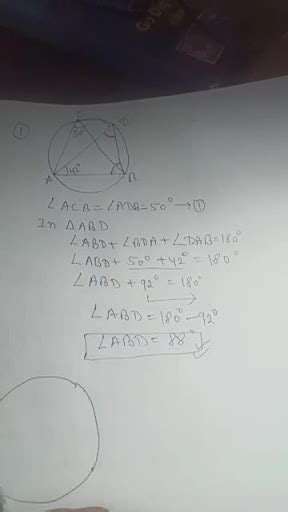 ①
C
D
50°
A
42°
B
∠ACB = ∠ADB = 50° → ①
In ΔABD
∠ABD + ∠BDA + ∠DAB = 180°
∠ABD + 50° + 42° = 180°
∠ABD + 92° = 180°
∠ABD = 180° - 92°
∠ABD = 88°